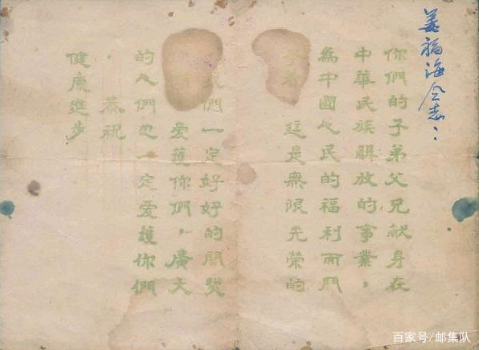 姜福海仝志：
你們的子弟父兄献身在
中華民族解放的事業，
為中國人民的福利而鬥
庭是無限光荣的
們一定好好的開災
爱護你們，廣大
的人們也一定爱護你們
恭祝
健康進步
百家号/邮集队